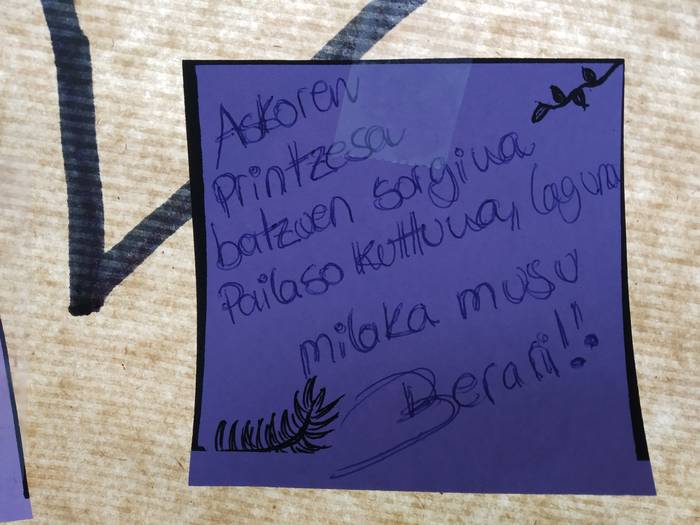 Askoren
printzesa
batzuen sorgiña
Pailaso kuttuna, laguna
milaka musu
Berari!!